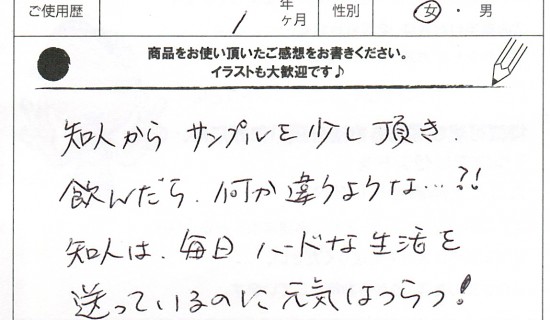 ご使用歴 1 年 ヶ月 性別 女・男
商品をお使い頂いたご感想をお書きください。
イラストも大歓迎です♪
知人から サンプルを少し頂き、
飲んだら、何か違うような…?!
知人は、毎日 ハードな生活を
送っているのに元気はつらつ!